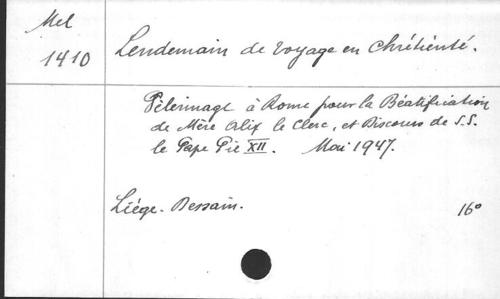 Mel
1410
Lendemain de voyage en Chrétienté.
Pèlerinage à Rome pour la Béatification
de Mère Alix le Clerc, et Discours de S.S.
le Pape Pie XII. Mai 1947.
Liége. Dessain. 16º